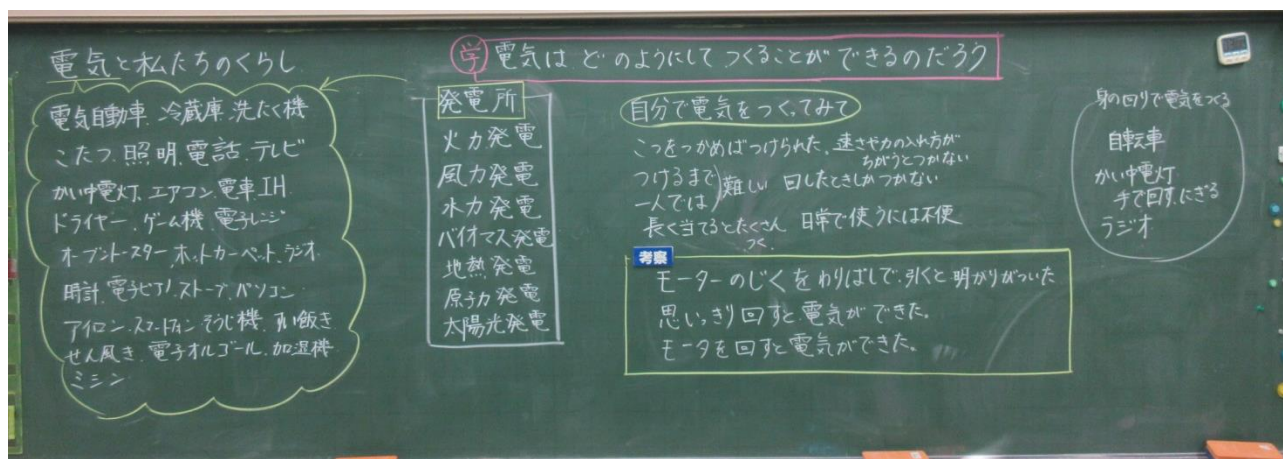 電気と私たちのくらし
電気自動車、冷蔵庫、洗たく機
こたつ、照明、電話、テレビ
かい中電灯、エアコン、電車、IH
ドライヤー、ゲーム機、電子レンジ
オーブントースター、ホットカーペット、ラジオ
時計、電子ピアノ、ストーブ、パソコン
アイロン、スマートフォン、そうじ機、すい飯き
せん風き、電子オルゴール、加湿機
ミシン
学 電気はどのようにしてつくることができるのだろう
発電所
火力発電
風力発電
水力発電
バイオマス発電
地熱発電
原子力発電
太陽光発電
自分で電気をつくってみて
こつをつかめばつけられた、速さや力の入れ方が
ちがうとつかない
つけるまで
一人では
難しい 回したときしかつかない
長く当てるとたくさん
つく、
日常で使うには不便
考察
モーターのじくをわりばしで、引くと明かりがついた
思いっきり回すと電気ができた。
モータを回すと電気ができた。
身の回りで電気をつくる
自転車
かい中電灯
手で回す、にぎる
ラジオ